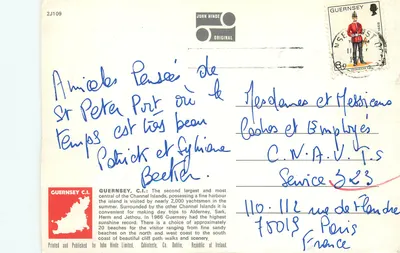 2J109
JOHN HINDE
ORIGINAL
GUERNSEY
Amicales Pensées de
St Peter Port où le
temps est très beau
Patrick et Sylviane
Becker.
Mesdames et Messieurs
Cadres et Employés
C.N.A.V.T.S
Service 323
110-112 rue de Flandre
75019 Paris
France
GUERNSEY C.I.
GUERNSEY, C.I.: The second largest and most
central of the Channel Islands, possessing a fine harbour
the island is visited by nearly 2,000 yachtsmen in the
summer. Surrounded by the other Channel Islands it is
convenient for making day trips to Alderney, Sark,
Herm and Jethou. In 1966 Guernsey had the highest
sunshine record. There is a choice of approximately
20 beaches for the visitor ranging from fine sandy
beaches on the north and west coast to the south
coast of beautiful cliff path walks and scenery.
Printed and Published by John Hinde Limited, Cabinteely, Co. Dublin, Republic of Ireland.